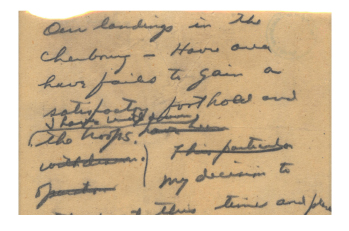 Our landings in the
Cherbourg - Havre area
have failed to gain a
satisfactory foothold and
I have withdrawn
(the troops. have been
withdrawn.) This particular
operation my decision to
this time and place